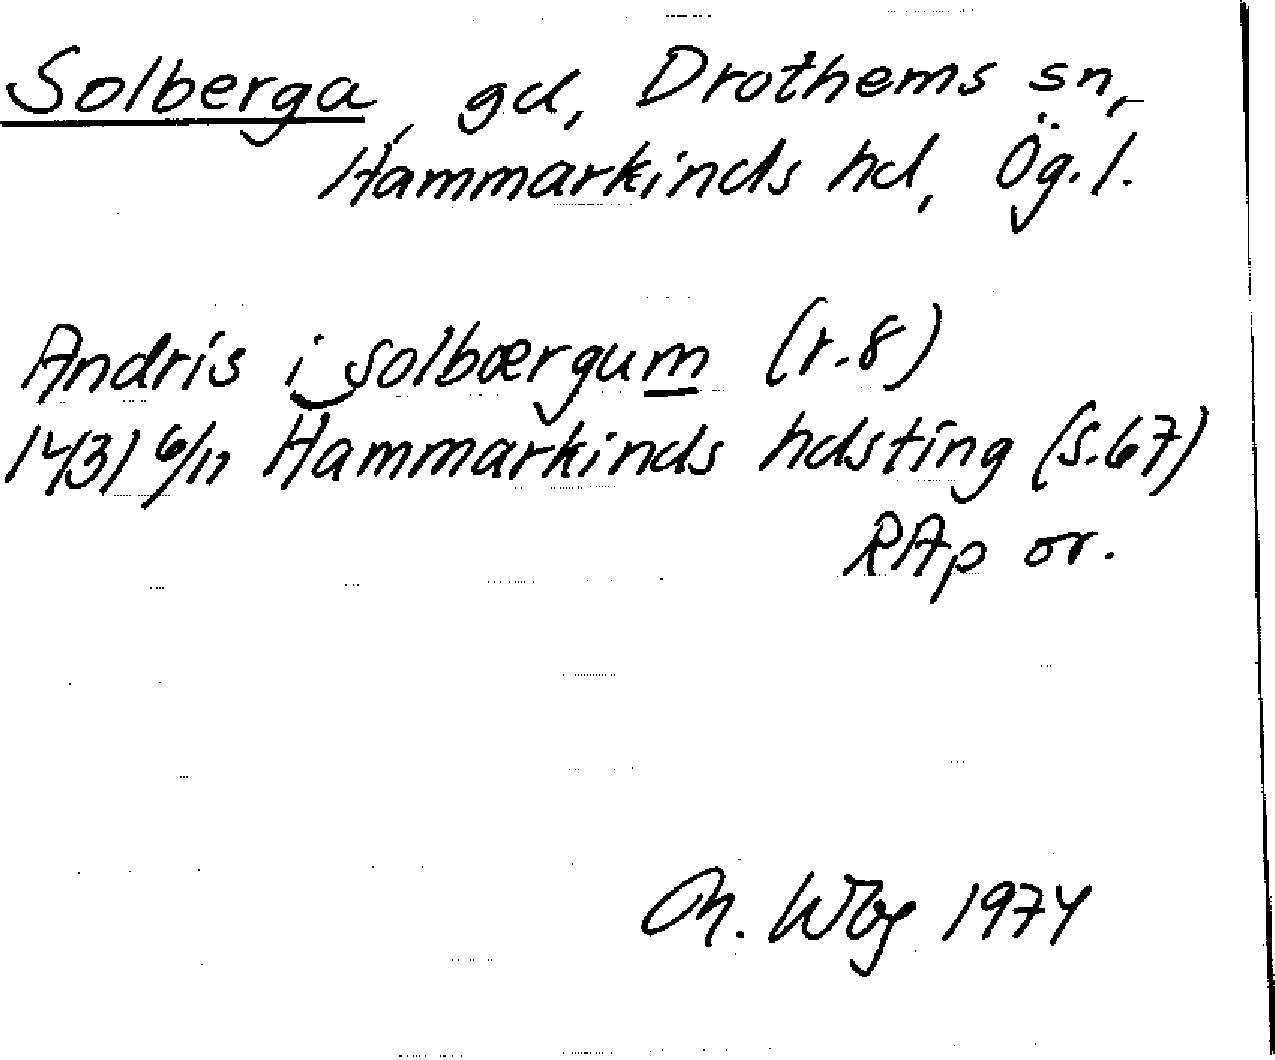 Solberga, gd, Drothems sn,
Hammarkinds hd, Ög. l.
Andris i solbærgum (r.8)
1431 6/11 Hammarkinds hdsting (S.67)
RAp or.
1974